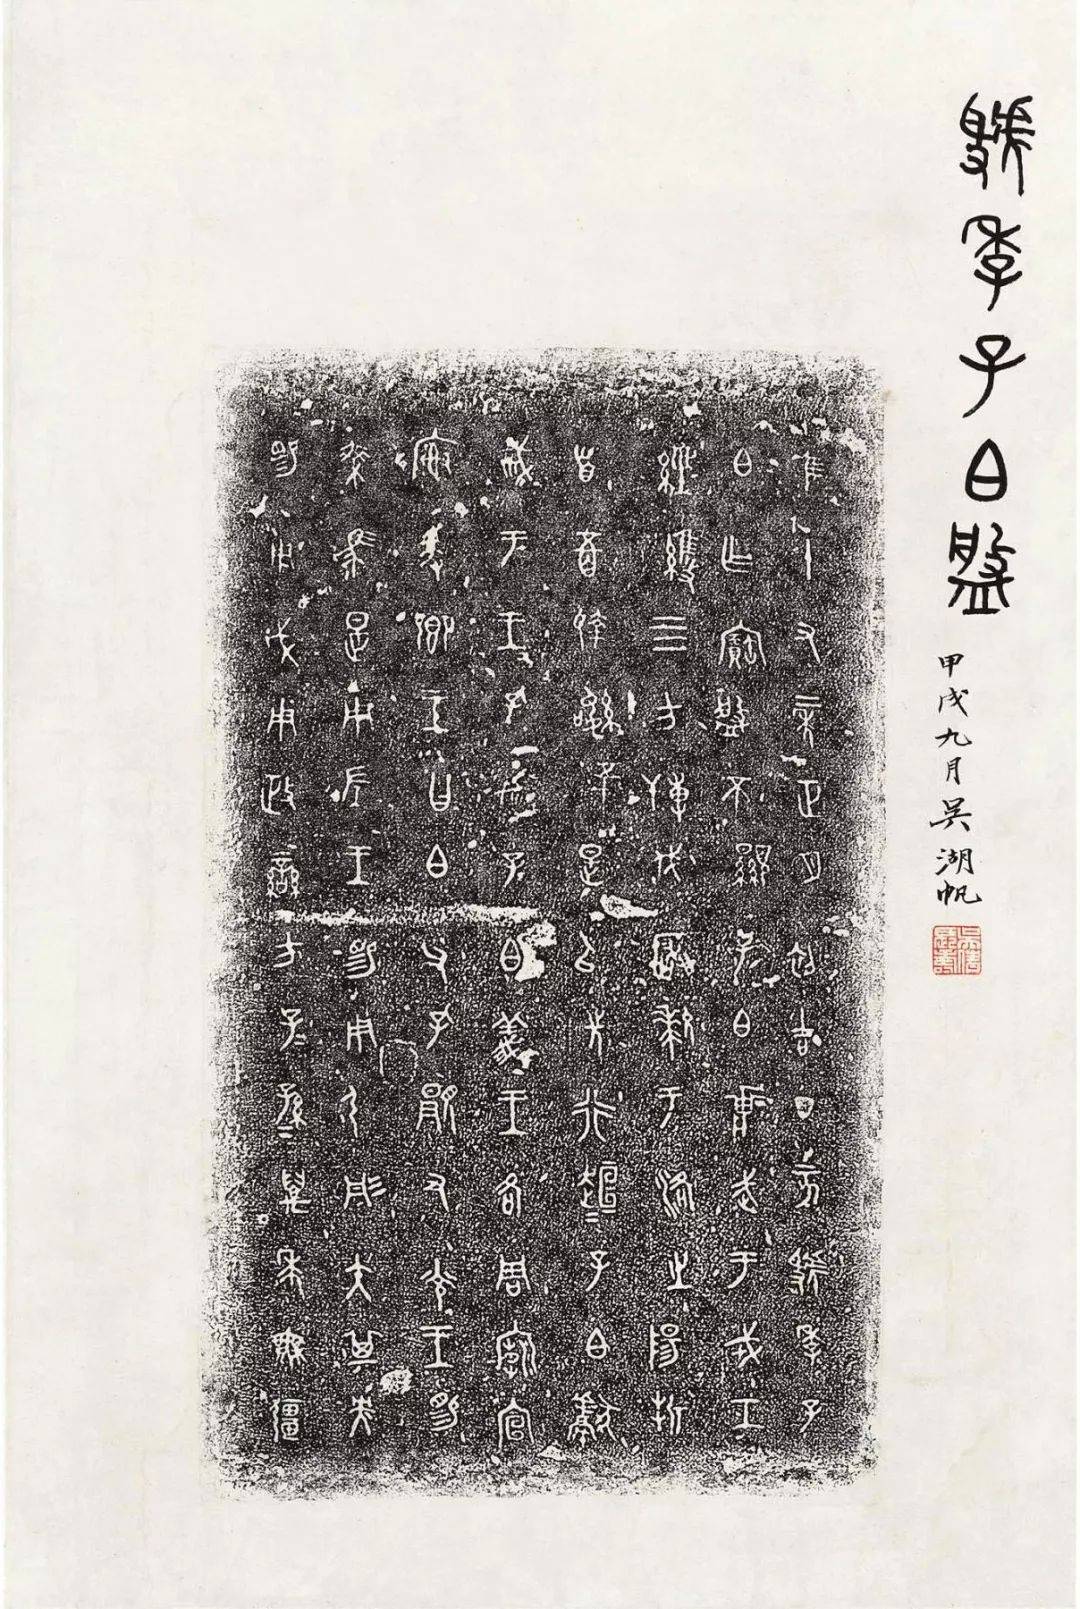 虢季子白盤
甲戌九月吳湖帆
隹十又二年正月初吉丁亥虢季子
白乍寶盤不顯子白𤕌武于戎工
經維四方搏伐玁狁于洛之陽折
首五百執訊五十是以先行趄=子白獻
馘于王=孔加子白義王各周廟宣
榭爰鄉王曰白父孔顯又光王賜
乘馬是用左王賜用弓彤矢其央
賜用戉用政蠻方子=孫=萬年無疆